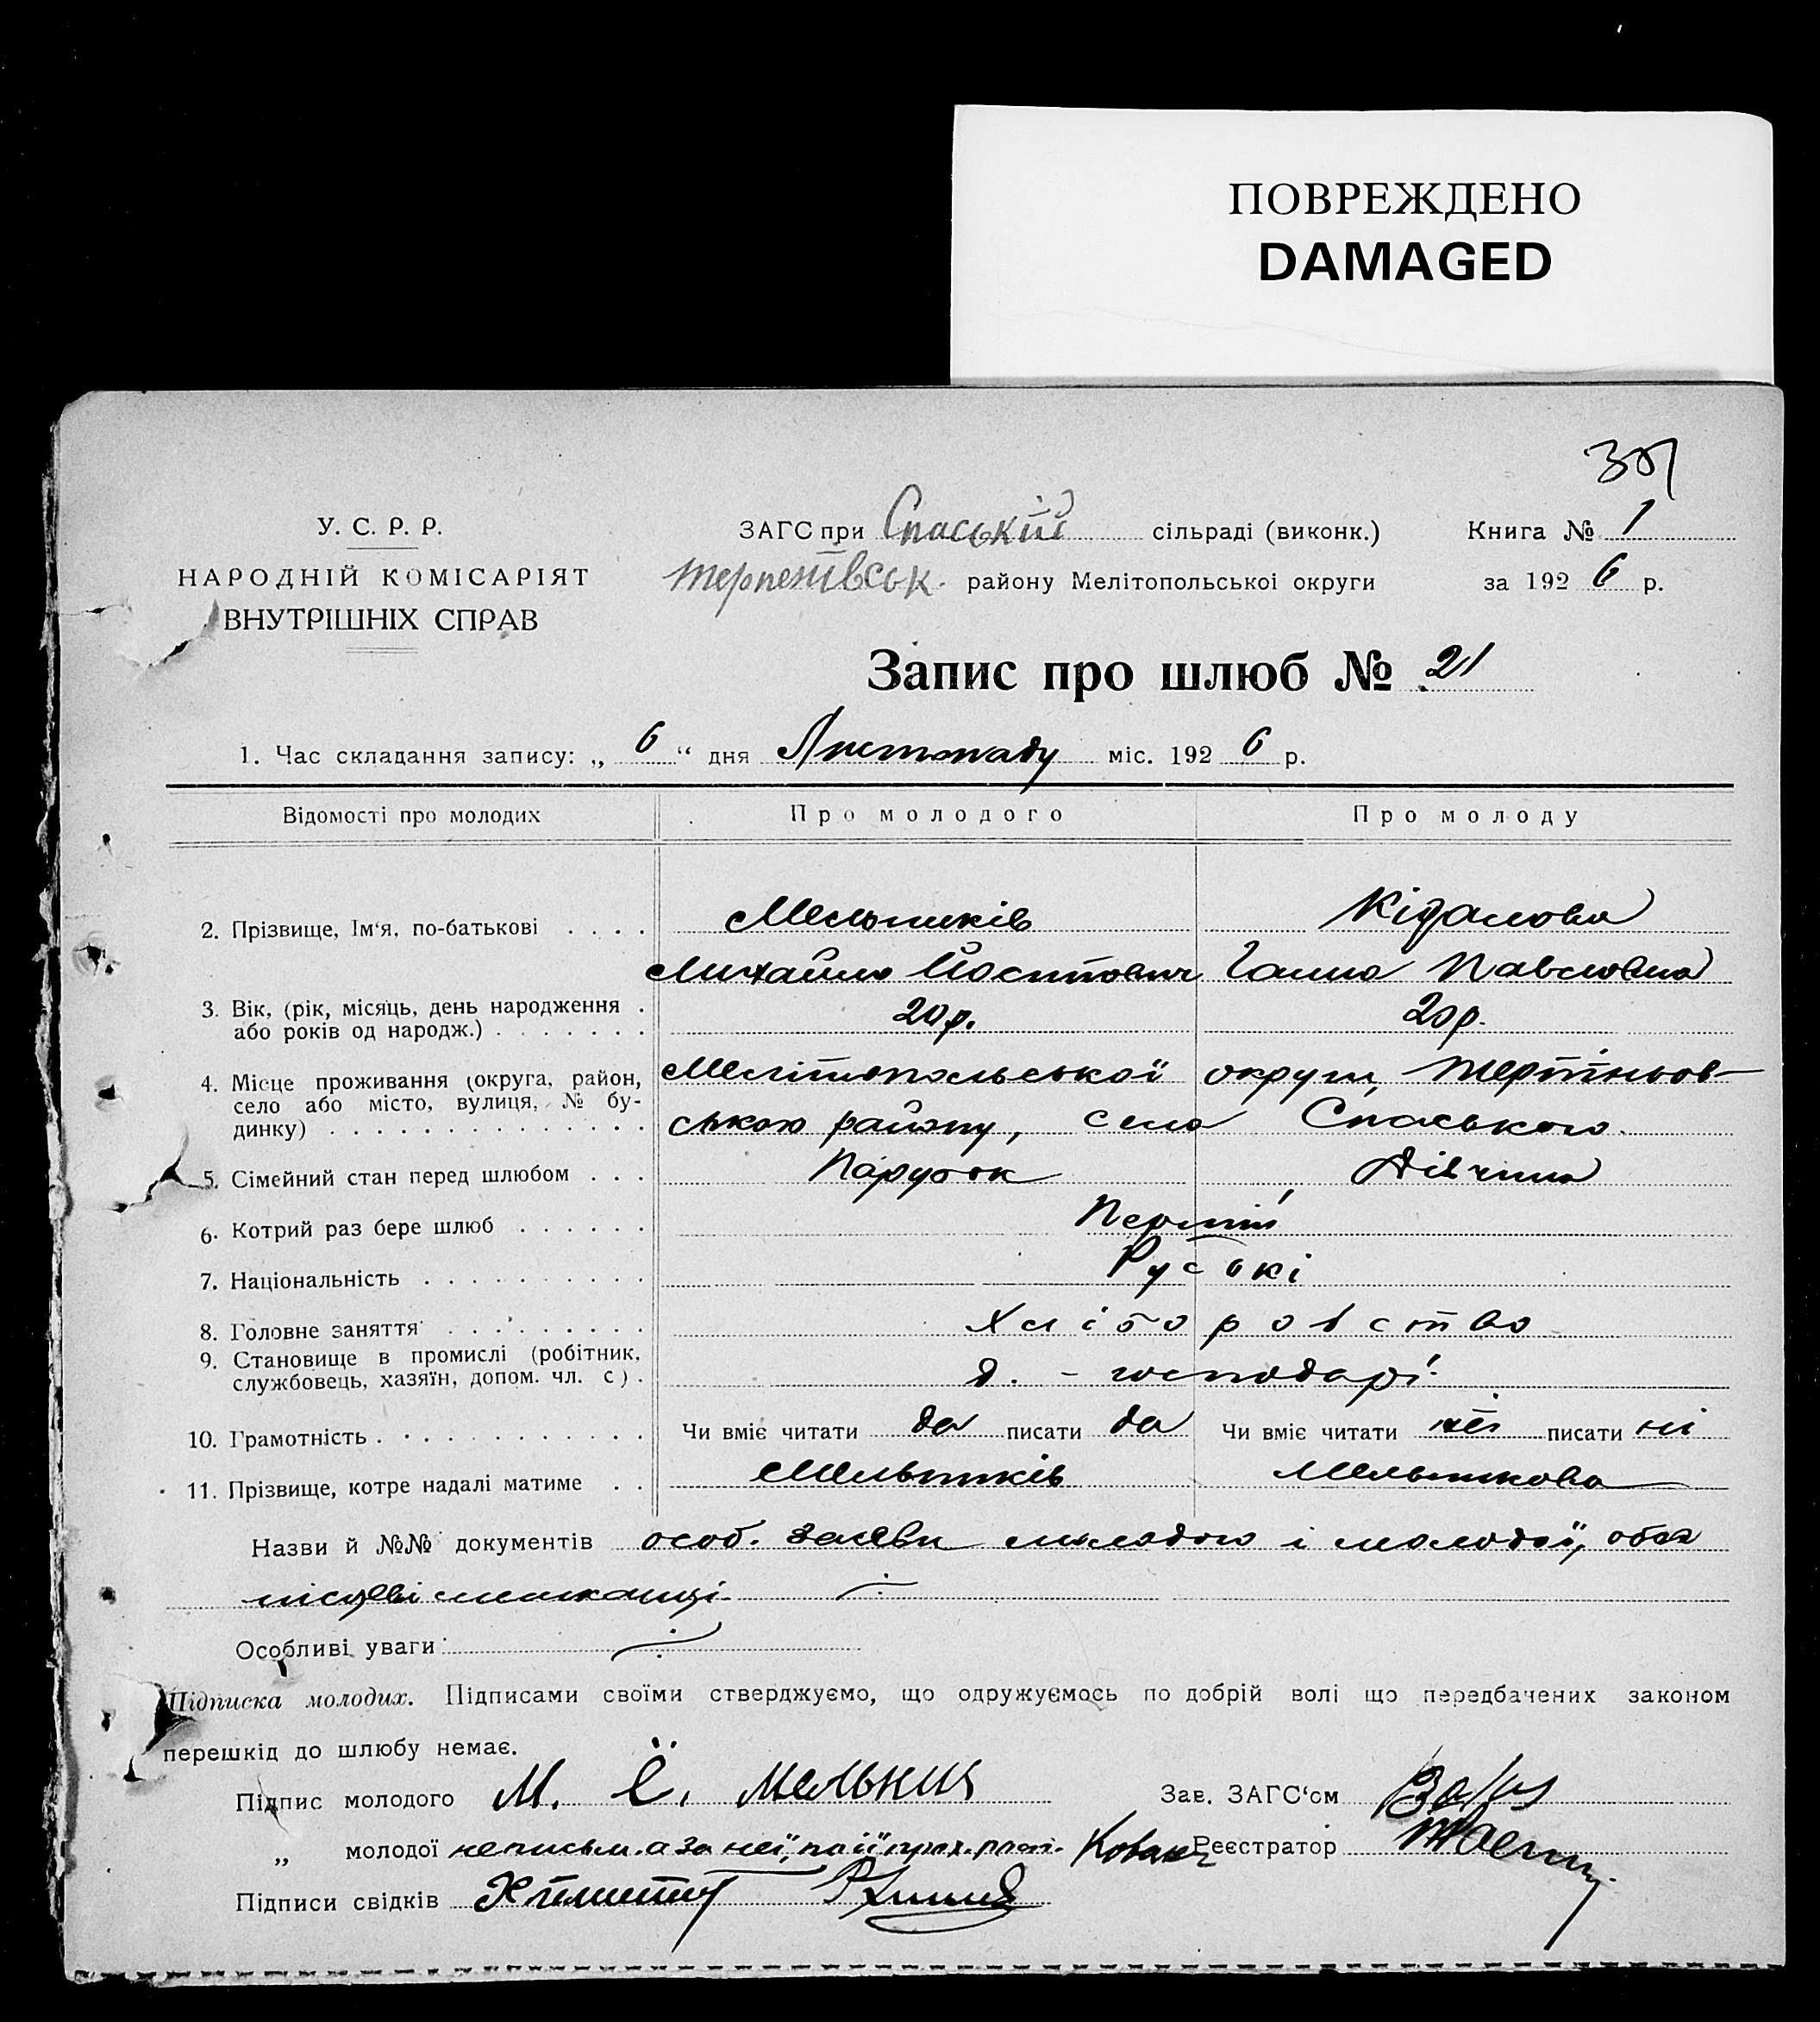 ПОВРЕЖДЕНО
DAMAGED
У. С. Р. Р.
НАРОДНІЙ КОМІСАРІЯТ
ВНУТРІШНІХ СПРАВ
ЗАГС при Спаській сільраді (виконк.)
району Мелітопольськоі округи
Книга № 1
за 1926 р.
Запис про шлюб № 21
1. Час складання запису: „ 6 “ дня Листопаду міс. 1926 р.
Відомості про молодих Про молодого Про молоду
2. Прізвище, Ім‘я, по-батькові . . . . Мельників
Михайло Ганна Павловна
3. Вік, (рік, місяць, день народження . 20 р. 20 р.
або років од народж.) . . . . . . .
4. Місце проживання (округа, район, Мелітопольської округи,
село або місто, вулиця, № бу- ського району, села Спаського.
динку) . . . . . . . . . . . . . .
5. Сімейний стан перед шлюбом . . . Парубок Дівчина
6. Котрий раз бере шлюб . . . . . . Перший
7. Національність . . . . . . . . . . Руські
8. Головне заняття . . . . . . . . . Хліборобство
9. Становище в промислі (робітник, господарі
службовець, хазяїн, допом. чл. с) .
10. Грамотність . . . . . . . . . . . . Чи вміє читати да писати да Чи вміє читати ні писати ні
11. Прізвище, котре надалі матиме . . Мельників Мельникова
Назви й №№ документів особ. заяви молодого і молодої, обоє
місцеві мешканці.
Особливі уваги
Підписка молодих. Підписами своїми стверджуємо, що одружуємось по добрій волі що передбачених законом
перешкід до шлюбу немає.
Підпис молодого М. Є. Мельник Зав. ЗАГС‘ом
„ молодої неписьм. а за неї, по її Реєстратор
Підписи свідків